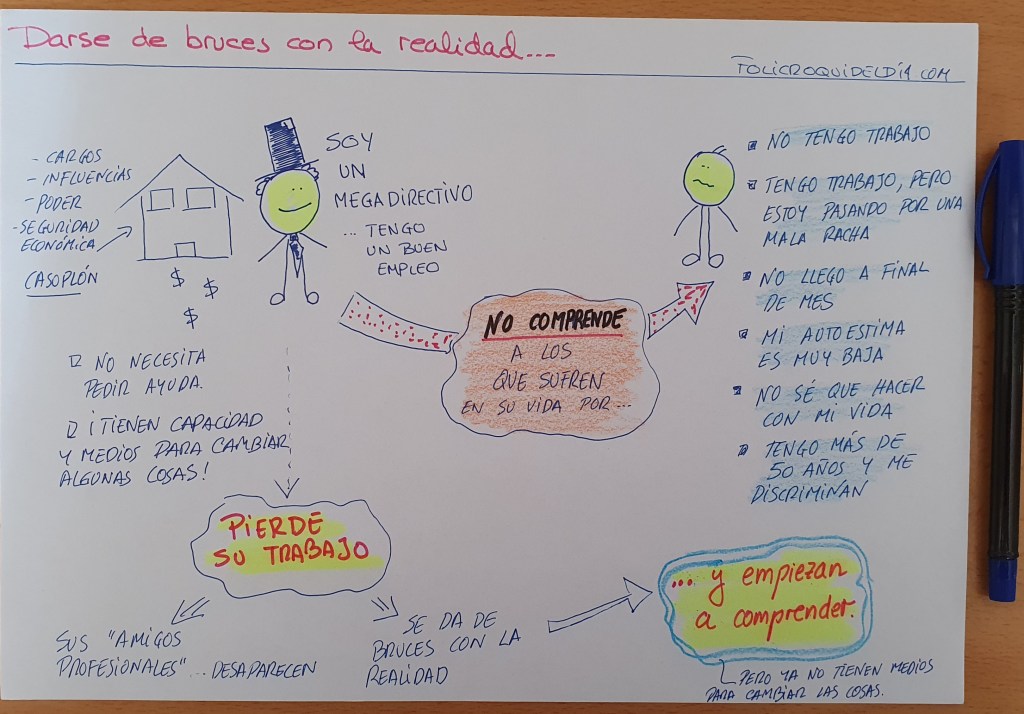 Darse de bruces con la realidad...
FOLICROQUIDELDÍA.COM
- CARGOS
- INFLUENCIAS
- PODER
- SEGURIDAD
ECONÓMICA
CASOPLÓN
$
$
$
SOY
UN
MEGADIRECTIVO
... TENGO
UN BUEN
EMPLEO
NO NECESITA
PEDIR AYUDA.
¡TIENEN CAPACIDAD
Y MEDIOS PARA CAMBIAR
ALGUNAS COSAS!
NO COMPRENDE
A LOS
QUE SUFREN
EN SU VIDA POR...
NO TENGO TRABAJO
TENGO TRABAJO, PERO
ESTOY PASANDO POR UNA
MALA RACHA
NO LLEGO A FINAL
DE MES
MI AUTOESTIMA
ES MUY BAJA
NO SÉ QUE HACER
CON MI VIDA
TENGO MÁS DE
50 AÑOS Y ME
DISCRIMINAN
PIERDE
SU TRABAJO
SUS "AMIGOS
PROFESIONALES"... DESAPARECEN
SE DA DE
BRUCES CON LA
REALIDAD
... y empiezan
a comprender.
PERO YA NO TIENEN MEDIOS
PARA CAMBIAR LAS COSAS.